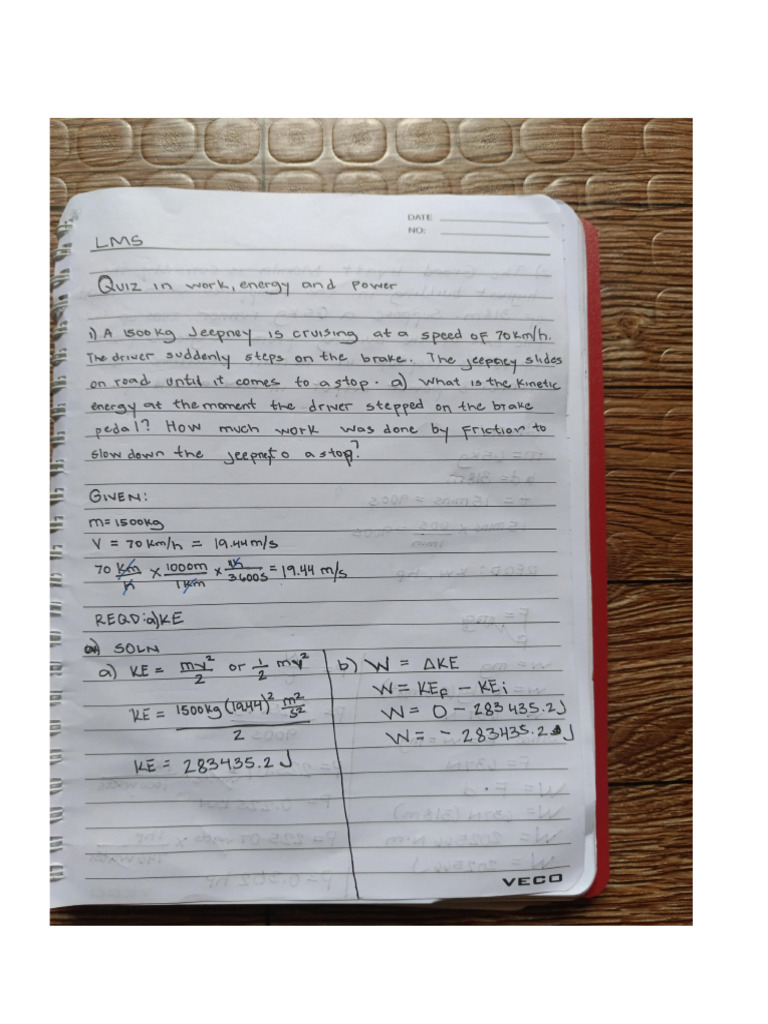 DATE
NO:
LMS
Quiz in work, energy and power
1) A 1500kg Jeepney is cruising at a speed of 70km/h.
The driver suddenly steps on the brake. The jeepney slides
on road until it comes to a stop. a) What is the kinetic
energy at the moment the driver stepped on the brake
pedal? How much work was done by friction to
slow down the jeepneto a stop?
GIVEN:
m=1500kg
V = 70 km/h = 19.44 m/s
70 km/h × 1000m/1km × 1h/3600s = 19.44 m/s
REQD: a) KE
a) SOLN
a) KE = mv²/2 or 1/2 mv²
KE = 1500kg (19.44)² m²/s² / 2
KE = 283435.2 J
b) W = ΔKE
W = KEf - KEi
W = 0 - 283435.2J
W = - 283435.2 J
VECO